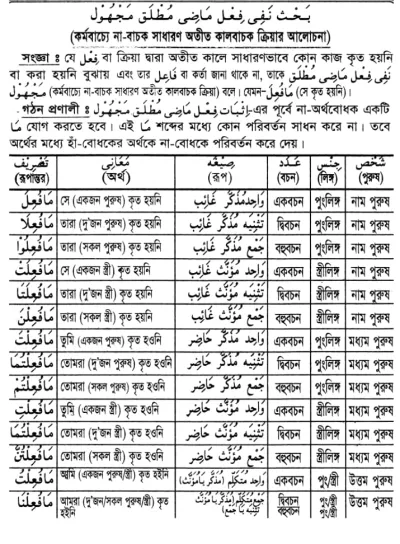 بَحْث نَفْيِ فِعْلِ مَاضِي مُطْلَق مَجْهُوْل
(কর্মবাচ্যে না-বাচক সাধারণ অতীত কালবাচক ক্রিয়ার আলোচনা)
সংজ্ঞা ঃ যে فِعْل বা ক্রিয়া দ্বারা অতীত কালে সাধারণভাবে কোন কাজ কৃত হয়নি
বা করা হয়নি বুঝায় এবং তার فَاعِل বা কর্তা জানা থাকে না, তাকে نَفِي فِعْل مَاضِي مُطْلَق
مَجْهُوْل (কর্মবাচ্যে না-বাচক সাধারণ অতীত কালবাচক ক্রিয়া) বলে। যেমন–مَافُعِلَ (সে কৃত হয়নি)।
গঠন প্রণালী ঃ اِثْبَات فِعْل مَاضِي مُطْلَق مَجْهُوْل-এর পূর্বে না-অর্থবোধক একটি
مَا যোগ করতে হবে। এই مَا শব্দের মধ্যে কোন পরিবর্তন সাধন করে না। তবে
অর্থের মধ্যে হাঁ-বোধককে অর্থকে না-বোধকে পরিবর্তন করে দেয়।
تَصْرِيْف مَعَانِي صِيْغَه عَدَد جِنْس شَخْص
(রূপান্তর) (অর্থ) (রূপ) (বচন) (লিঙ্গ) (পুরুষ)
مَافُعِلَ সে (একজন পুরুষ) কৃত হয়নি وَاحِد مُذَكَّر غَائِب একবচন পুংলিঙ্গ নাম পুরুষ
مَافُعِلَا তারা (দু'জন পুরুষ) কৃত হয়নি تَثْنِيَه مُذَكَّر غَائِب দ্বিবচন পুংলিঙ্গ নাম পুরুষ
مَافُعِلُوْا তারা (সকল পুরুষ) কৃত হয়নি جَمْع مُذَكَّر غَائِب বহুবচন পুংলিঙ্গ নাম পুরুষ
مَافُعِلَتْ সে (একজন স্ত্রী) কৃত হয়নি وَاحِد مُؤَنَّث غَائِب একবচন স্ত্রীলিঙ্গ নাম পুরুষ
مَافُعِلَتَا তারা (দু'জন স্ত্রী) কৃত হয়নি تَثْنِيَه مُؤَنَّث غَائِب দ্বিবচন স্ত্রীলিঙ্গ নাম পুরুষ
مَافُعِلْنَ তারা (সকল স্ত্রী) কৃত হয়নি جَمْع مُؤَنَّث غَائِب বহুবচন স্ত্রীলিঙ্গ নাম পুরুষ
مَافُعِلْتَ তুমি (একজন পুরুষ) কৃত হওনি وَاحِد مُذَكَّر حَاضِر একবচন পুংলিঙ্গ মধ্যম পুরুষ
مَافُعِلْتُمَا তোমরা (দু'জন পুরুষ) কৃত হওনি تَثْنِيَه مُذَكَّر حَاضِر দ্বিবচন পুংলিঙ্গ মধ্যম পুরুষ
مَافُعِلْتُمْ তোমরা (সকল পুরুষ) কৃত হওনি جَمْع مُذَكَّر حَاضِر বহুবচন পুংলিঙ্গ মধ্যম পুরুষ
مَافُعِلْتِ তুমি (একজন স্ত্রী) কৃত হওনি وَاحِد مُؤَنَّث حَاضِر একবচন স্ত্রীলিঙ্গ মধ্যম পুরুষ
مَافُعِلْتُمَا তোমরা (দু'জন স্ত্রী) কৃত হওনি تَثْنِيَه مُؤَنَّث حَاضِر দ্বিবচন স্ত্রীলিঙ্গ মধ্যম পুরুষ
مَافُعِلْتُنَّ তোমরা (সকল স্ত্রী) কৃত হওনি جَمْع مُؤَنَّث حَاضِر বহুবচন স্ত্রীলিঙ্গ মধ্যম পুরুষ
مَافُعِلْتُ আমি (একজন পুরুষ/স্ত্রী) কৃত হইনি وَاحِد مُتَكَلِّم (مُذَكَّر يَا مُؤَنَّث) একবচন পুং/স্ত্রী উত্তম পুরুষ
مَافُعِلْنَا আমরা (দু'জন/সকল পুরুষ/স্ত্রী) কৃত جَمْع مُتَكَلِّم (مُذَكَّر يَا مُؤَنَّث দ্বিবচন পুং/স্ত্রী উত্তম পুরুষ
হইনি تَثْنِيَه يَا جَمْع) বহুবচন পুং/স্ত্রী